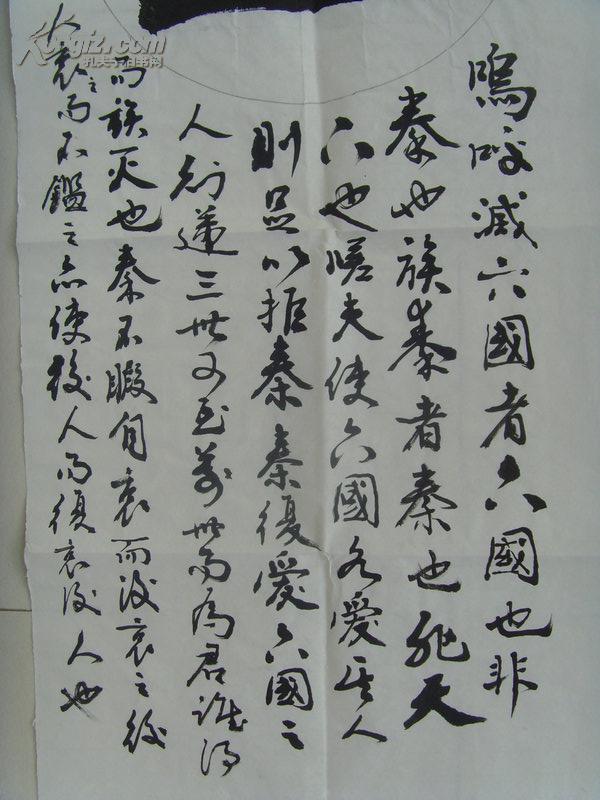 嗚呼滅六國者六國也非
秦也族秦者秦也非天
下也嗟夫使六國各愛其人
則足以拒秦秦復愛六國之
人則遞三世可至萬世而為君誰得
而族灭也秦不暇自哀而後哀之後
人哀之而不鑑之亦使後人而復哀後人也
Kongfz.com
孔夫子旧书网